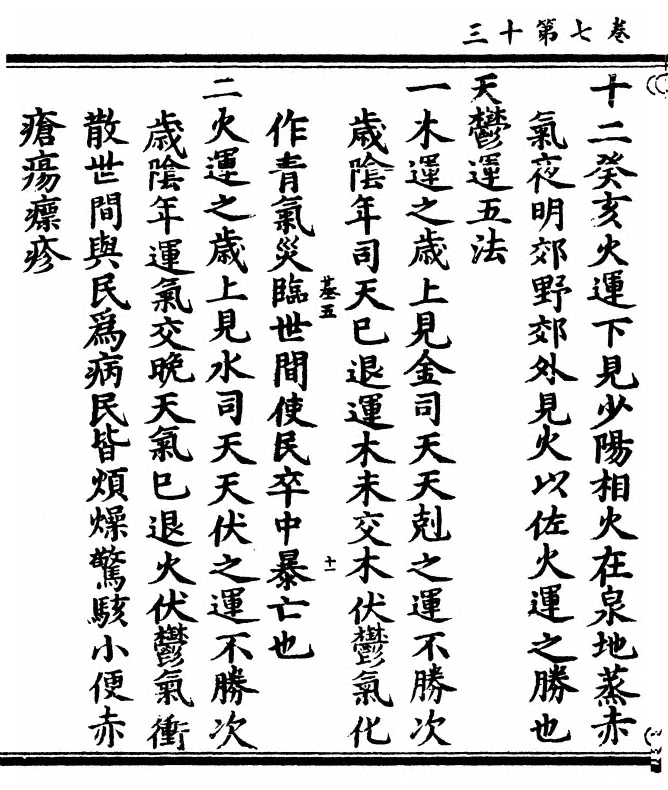 卷七第十三
十二癸亥火運下見少陽相火在泉地蒸赤
氣夜明郊野郊外見火以佐火運之勝也
天鬱運五法
一木運之歲上見金司天天剋之運不勝次
歲陰年司天巳退運木未交木伏鬱氣化
基五
十一
作青氣災臨世間使民卒中暴亡也
二火運之歲上見水司天天伏之運不勝次
歲陰年運氣交晚天氣巳退火伏鬱氣衝
散世間與民爲病民皆煩燥驚駭小便赤
瘡瘍瘭疹